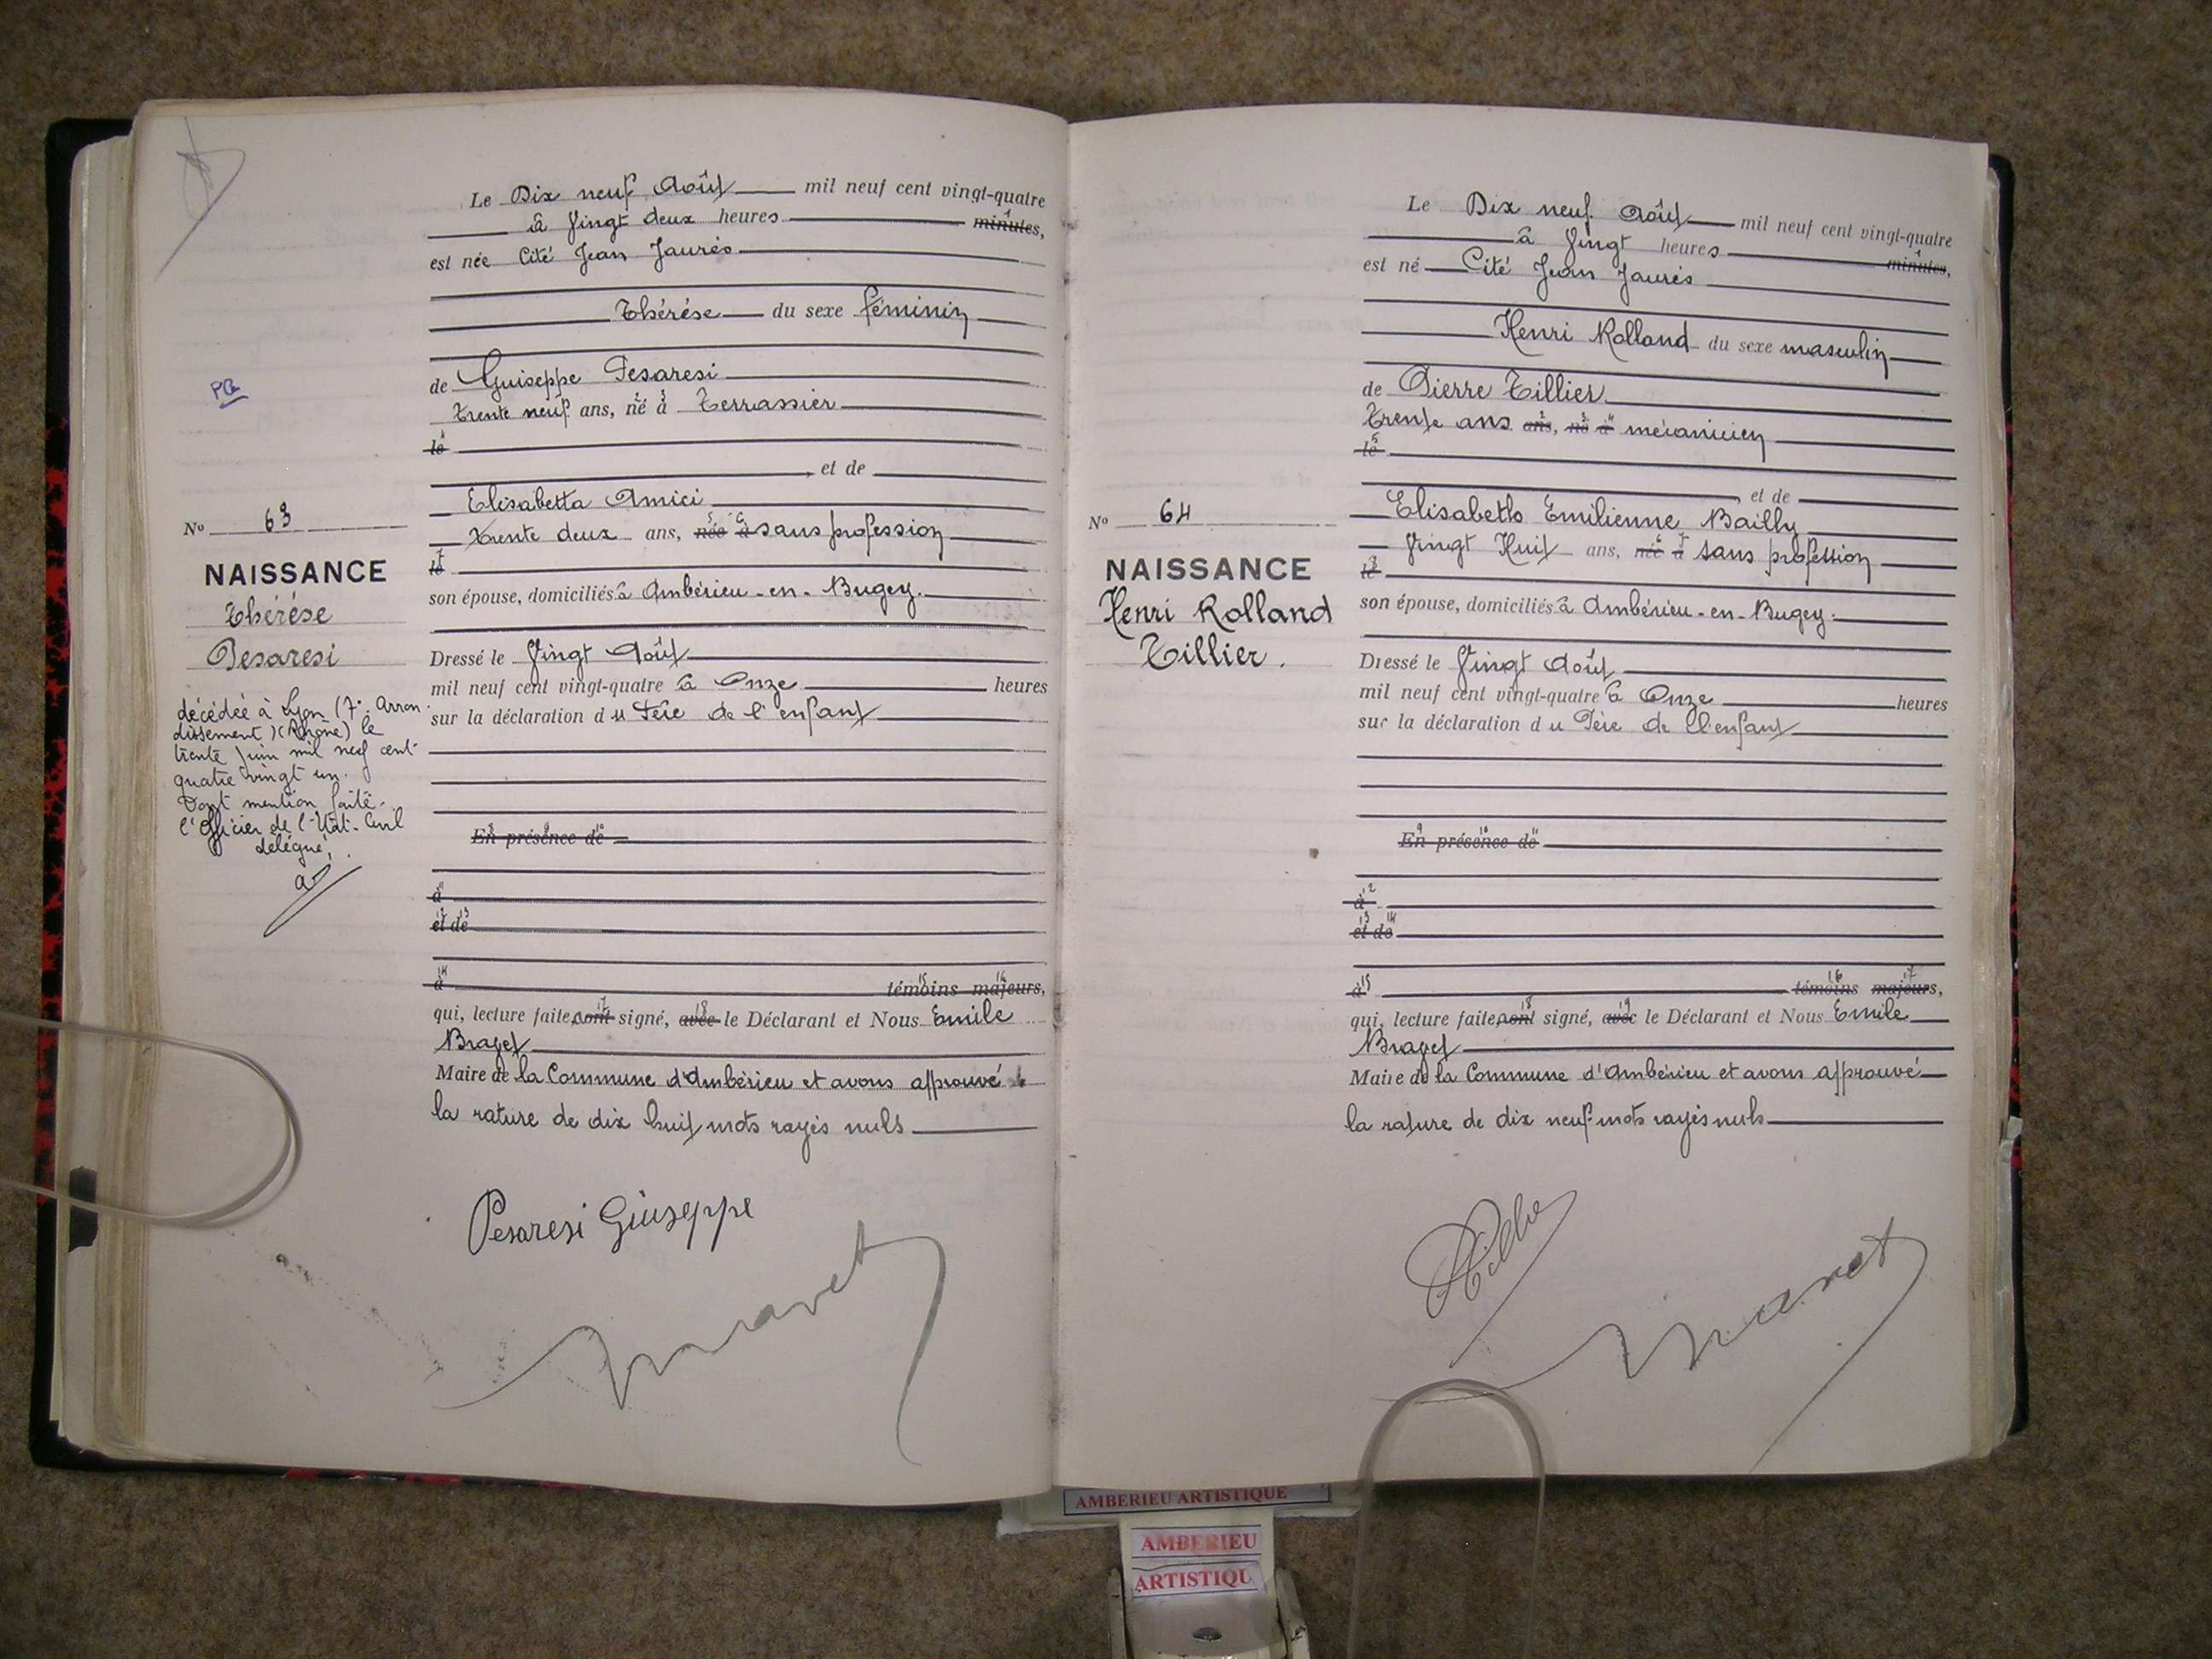 Le Dix neuf Août mil neuf cent vingt-quatre
à Vingt deux heures minutes,
est née Cité Jean Jaurés
Thérése du sexe féminin
de Guiseppe Pesaresi
Trente neuf ans, né à Terrassier
le
et de
Elisabetta Amici
Trente deux ans, née à sans profession
le
son épouse, domiciliés à Ambérieu-en-Bugey.
Dressé le Vingt Août
mil neuf cent vingt-quatre à Onze heures
sur la déclaration du Père de l'enfant
En présence de
à
et de
à témoins majeurs,
qui, lecture faite, ont signé, avec le Déclarant et Nous Emile
Maire de la Commune d'Ambérieu et avons approuvé
la rature de dix huit mots rayés nuls
Pesaresi Giuseppe
PB
No 63
NAISSANCE
Thérése
Pesaresi
décédée à Lyon (7e Arron
dissement) (Rhône) le
trente Juin mil neuf cent
quatre vingt un.
Dont mention faite.
l'Officier de l'Etat-Civil
délégué,
Le Dix neuf Août mil neuf cent vingt-quatre
à Vingt heures minutes,
est né Cité Jean Jaurés
Henri Rolland du sexe masculin
de Pierre Tillier
Trente ans ans, né à mécanicien
le
et de
Elisabeth Emilienne Bailly
Vingt Huit ans, née à sans profession
le
son épouse, domiciliés à Ambérieu-en-Bugey.
Dressé le Vingt Août
mil neuf cent vingt-quatre à Onze heures
sur la déclaration du Père de l'enfant
En présence de
à
et de
à témoins majeurs,
qui, lecture faite, ont signé, avec le Déclarant et Nous Emile
Maire de la Commune d'Ambérieu et avons approuvé
la rature de dix neuf mots rayés nuls
No 64
NAISSANCE
Henri Rolland
Tillier.
AMBERIEU ARTISTIQUE
AMBERIEU
ARTISTIQU